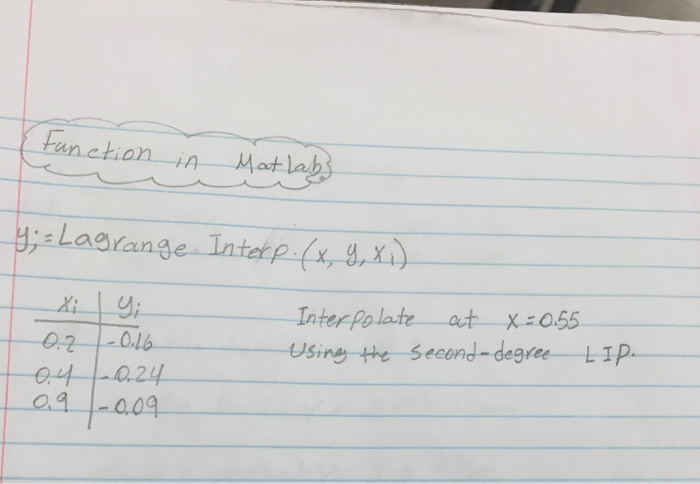 Function in Matlab
yi = Lagrange Interp. (x, y, xi)
xi yi
0.2 -0.16
0.4 -0.24
0.9 -0.09
Interpolate at x = 0.55
Using the second-degree LIP.